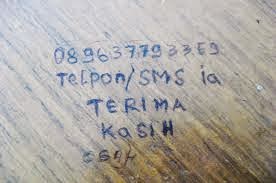 089637793359
Telpon/SMS ia
TERIMA
KASIH